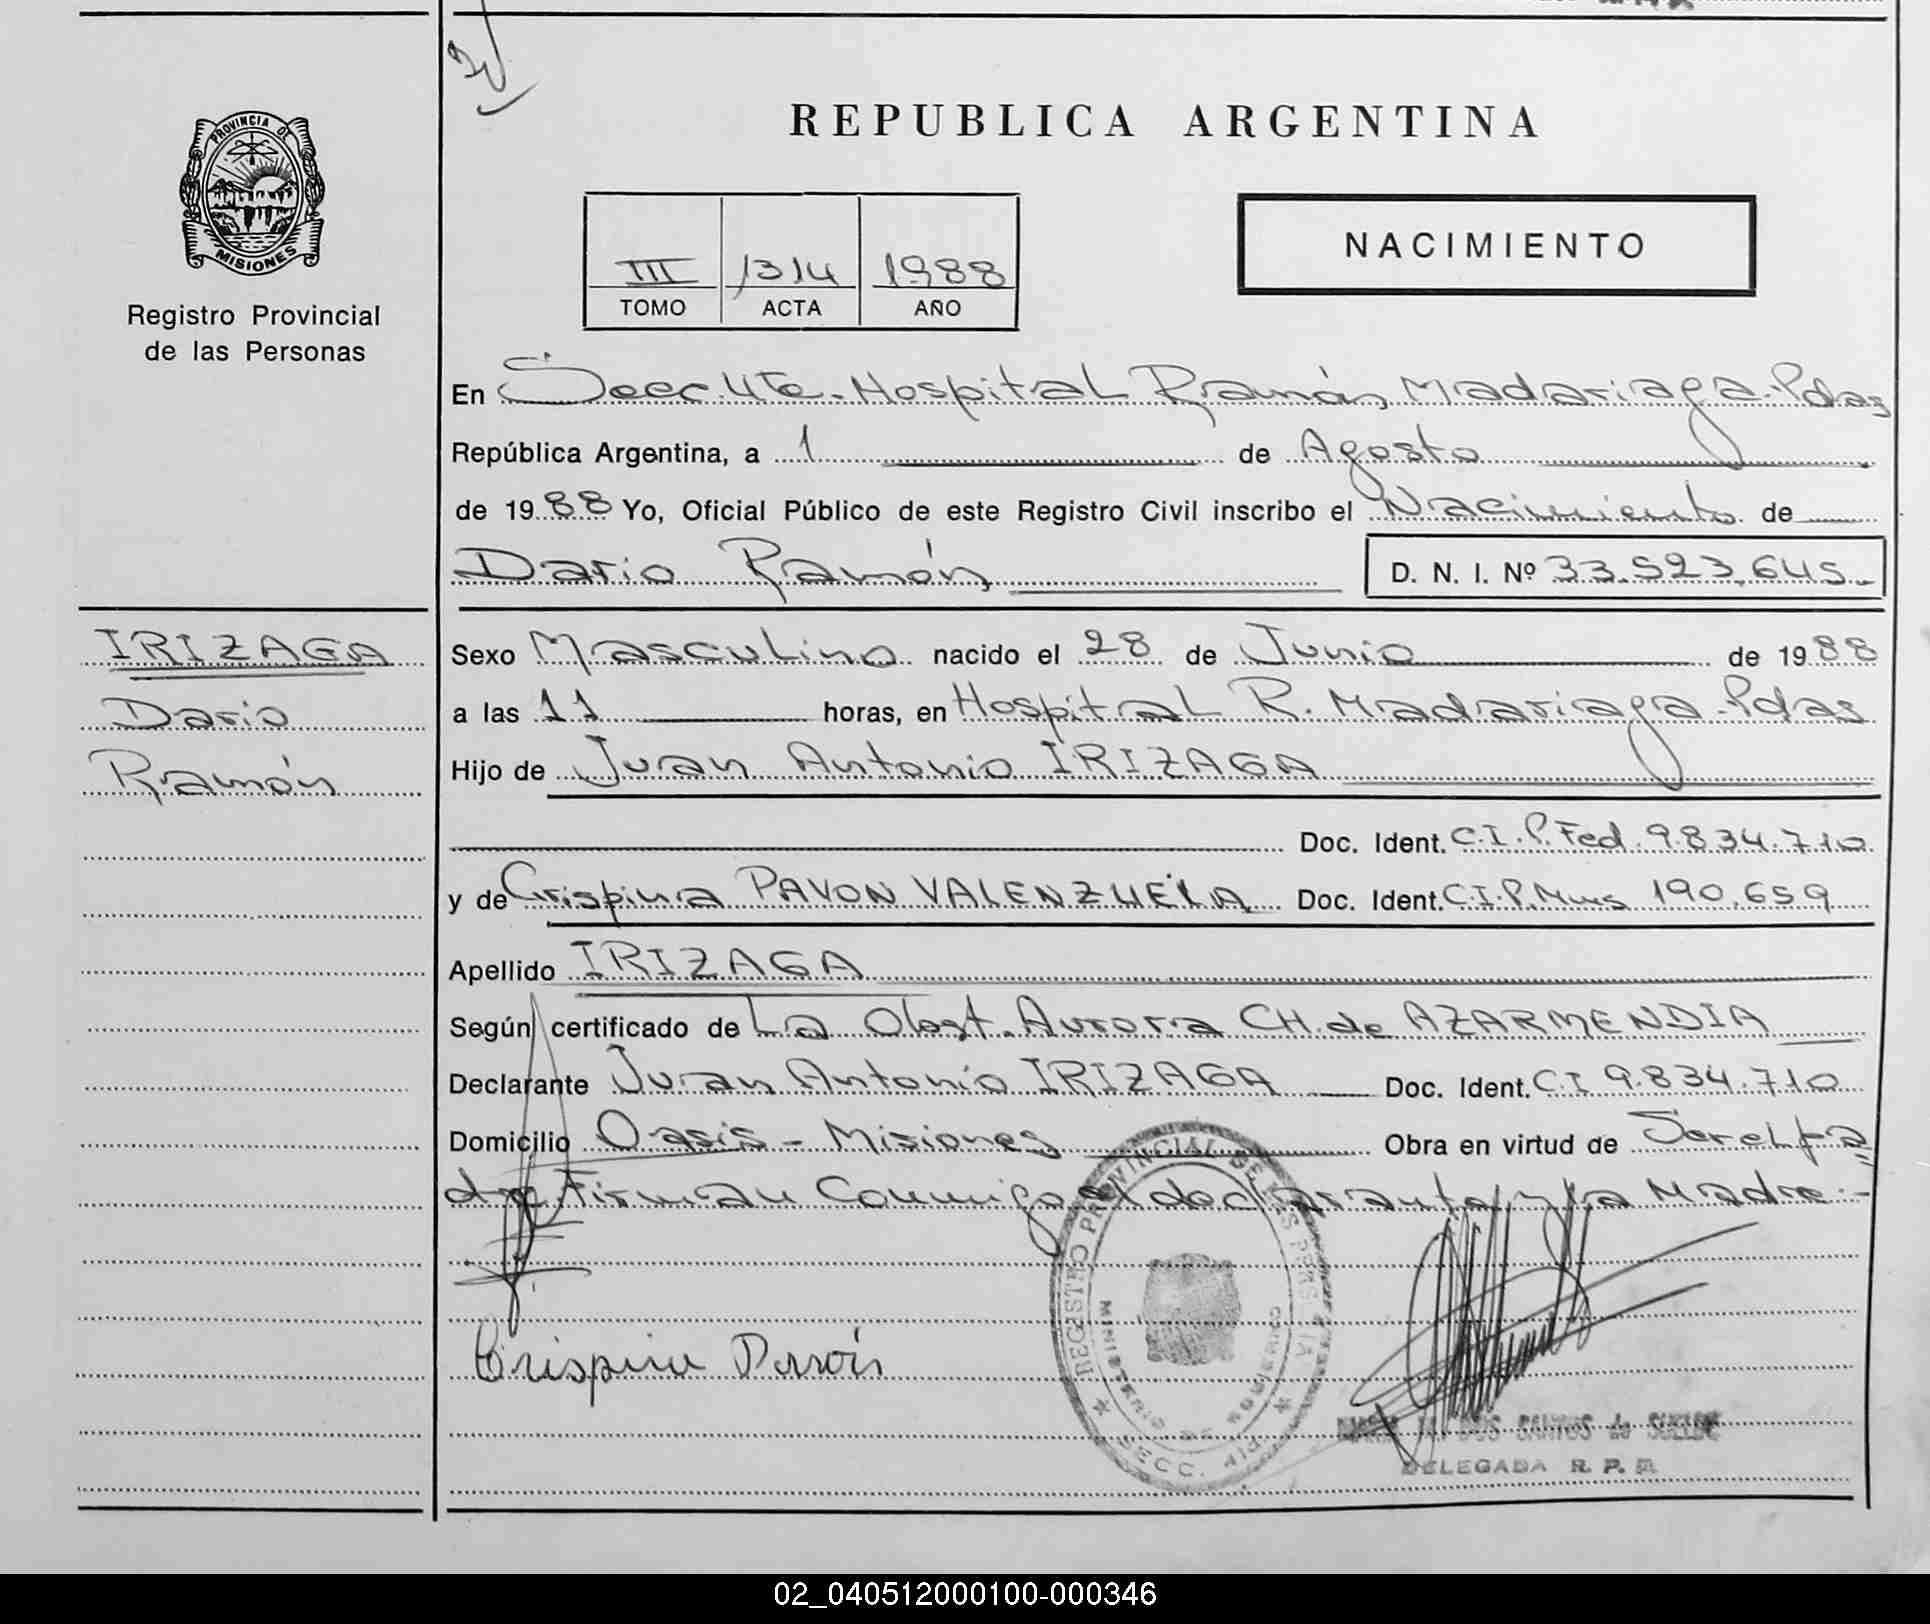 PROVINCIA DE
MISIONES
Registro Provincial
de las Personas
REPUBLICA ARGENTINA
III 1314 1988
TOMO ACTA AÑO
NACIMIENTO
En Secc. 4ta. Hospital Ramón Madariaga. Pdas
República Argentina, a 1 de Agosto
de 1988 Yo, Oficial Público de este Registro Civil inscribo el Nacimiento de
Dario Ramón D. N. I. Nº 33.523.645.-
IRIZAGA
Dario
Ramón
Sexo Masculino nacido el 28 de Junio de 1988
a las 11 horas, en Hospital R. Madariaga. Pdas
Hijo de Juan Antonio IRIZAGA
Doc. Ident. C.I.P. Fed. 9.834.710
y de Crispina PAVON VALENZUELA Doc. Ident. C.I.P. Mnes 190.659
Apellido IRIZAGA
Según certificado de La Obst. Aurora CH. de AZARMENDIA
Declarante Juan Antonio IRIZAGA Doc. Ident. C.I 9.834.710
Domicilio Oasis - Misiones Obra en virtud de Ser el pa
dre Firman Conmigo el declarante y la Madre.-
Crispina Pavón
REGISTRO PROVINCIAL DE LAS PERSONAS
SECC. 4ta
DOS SANTOS de
DELEGADA R. P. P.
02_040512000100-000346